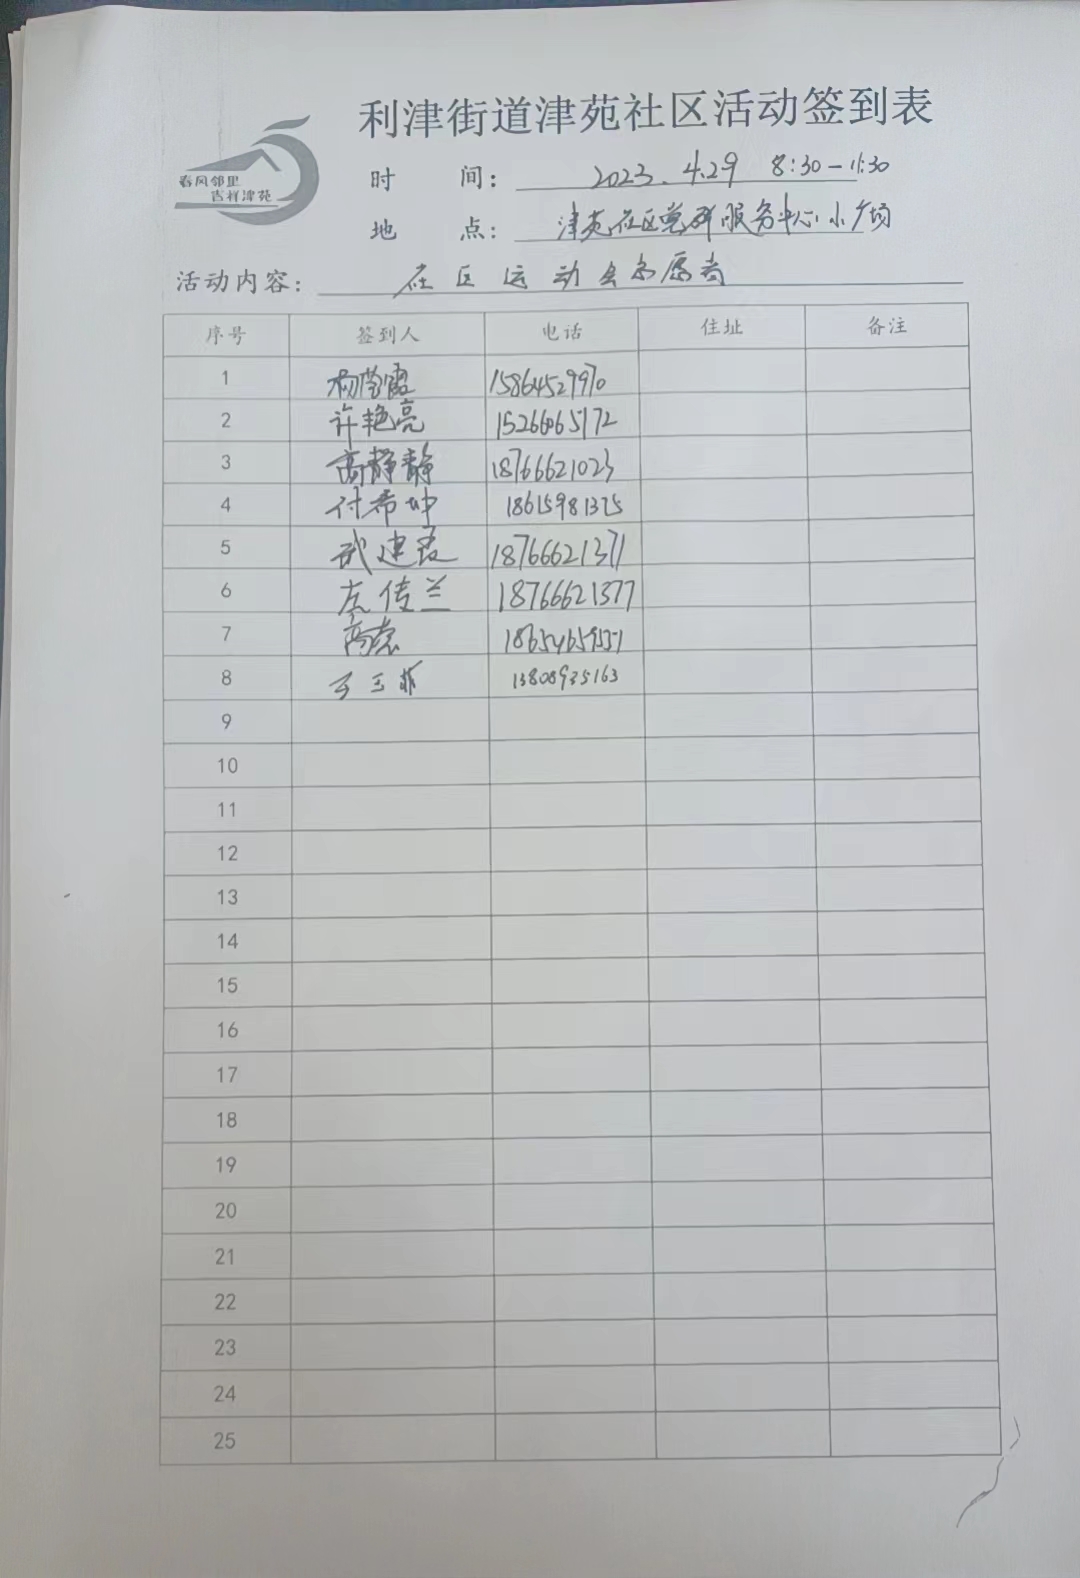 利津街道津苑社区活动签到表
春风邻里
吉祥津苑
时 间: 2023.4.29 8:30-11:30
地 点: 津苑社区党群服务中心小广场
活动内容: 社区运动会志愿者
序号 签到人 电话 住址 备注
1 杨莹霞 15864529970
2 许艳亮 15266065172
3 高静静 18766621023
4 付希坤 18615981325
5 武建 18766621371
6 左传兰 18766621377
7 高 18654659551
8 王玉菲 13808935163
9
10
11
12
13
14
15
16
17
18
19
20
21
22
23
24
25